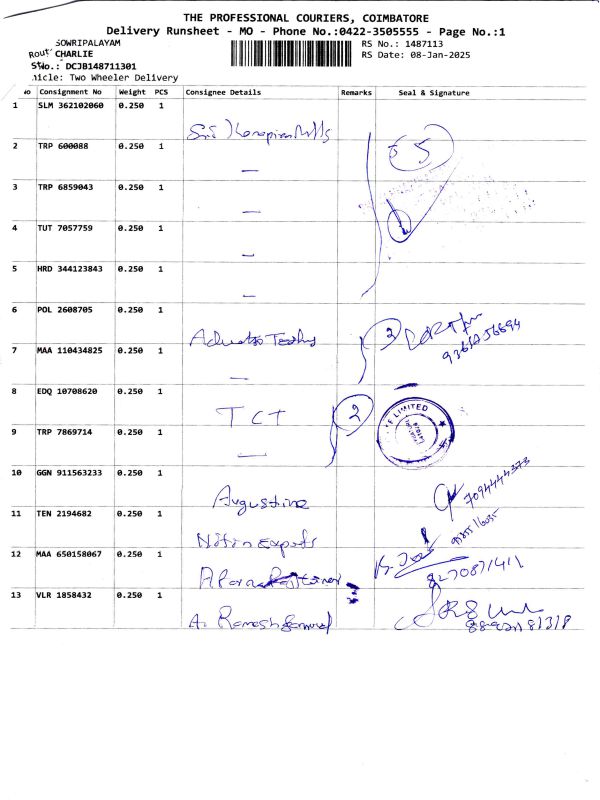 THE PROFESSIONAL COURIERS, COIMBATORE
Delivery Runsheet - MO - Phone No.:0422-3505555 - Page No.:1
SOWRIPALAYAM
Rout CHARLIE
STNo.: DCJB148711301
icle: Two Wheeler Delivery
RS No.: 1487113
RS Date: 08-Jan-2025
No Consignment No Weight PCS Consignee Details Remarks Seal & Signature
1 SLM 362102060 0.250 1
2 TRP 600088 0.250 1
5
3 TRP 6859043 0.250 1
4 TUT 7057759 0.250 1
5 HRD 344123843 0.250 1
6 POL 2608705 0.250 1
2
7 MAA 110434825 0.250 1
8 EDQ 10708620 0.250 1
TCT 2
LIMITED
9 TRP 7869714 0.250 1
10 GGN 911563233 0.250 1
Augustine 7094444373
11 TEN 2194682 0.250 1
Nitin Exports
12 MAA 650158067 0.250 1
8270871411
13 VLR 1858432 0.250 1
A. Ramesh